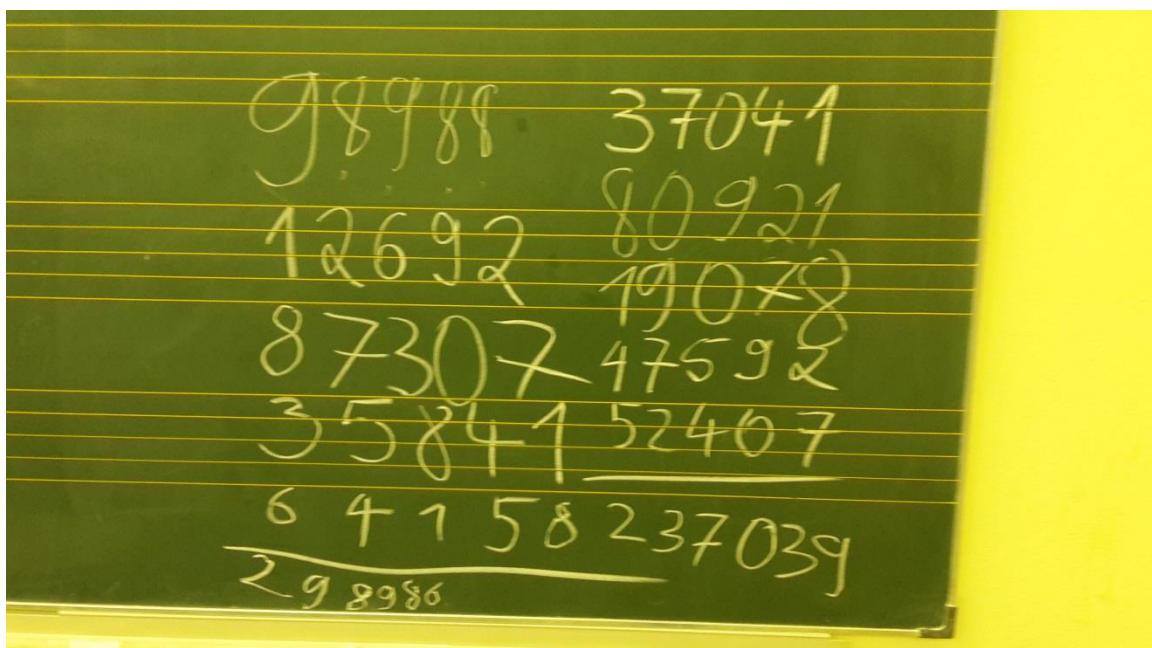 98988
12692
87307
35841
64158
298986
37041
80921
19078
47592
52407
237039